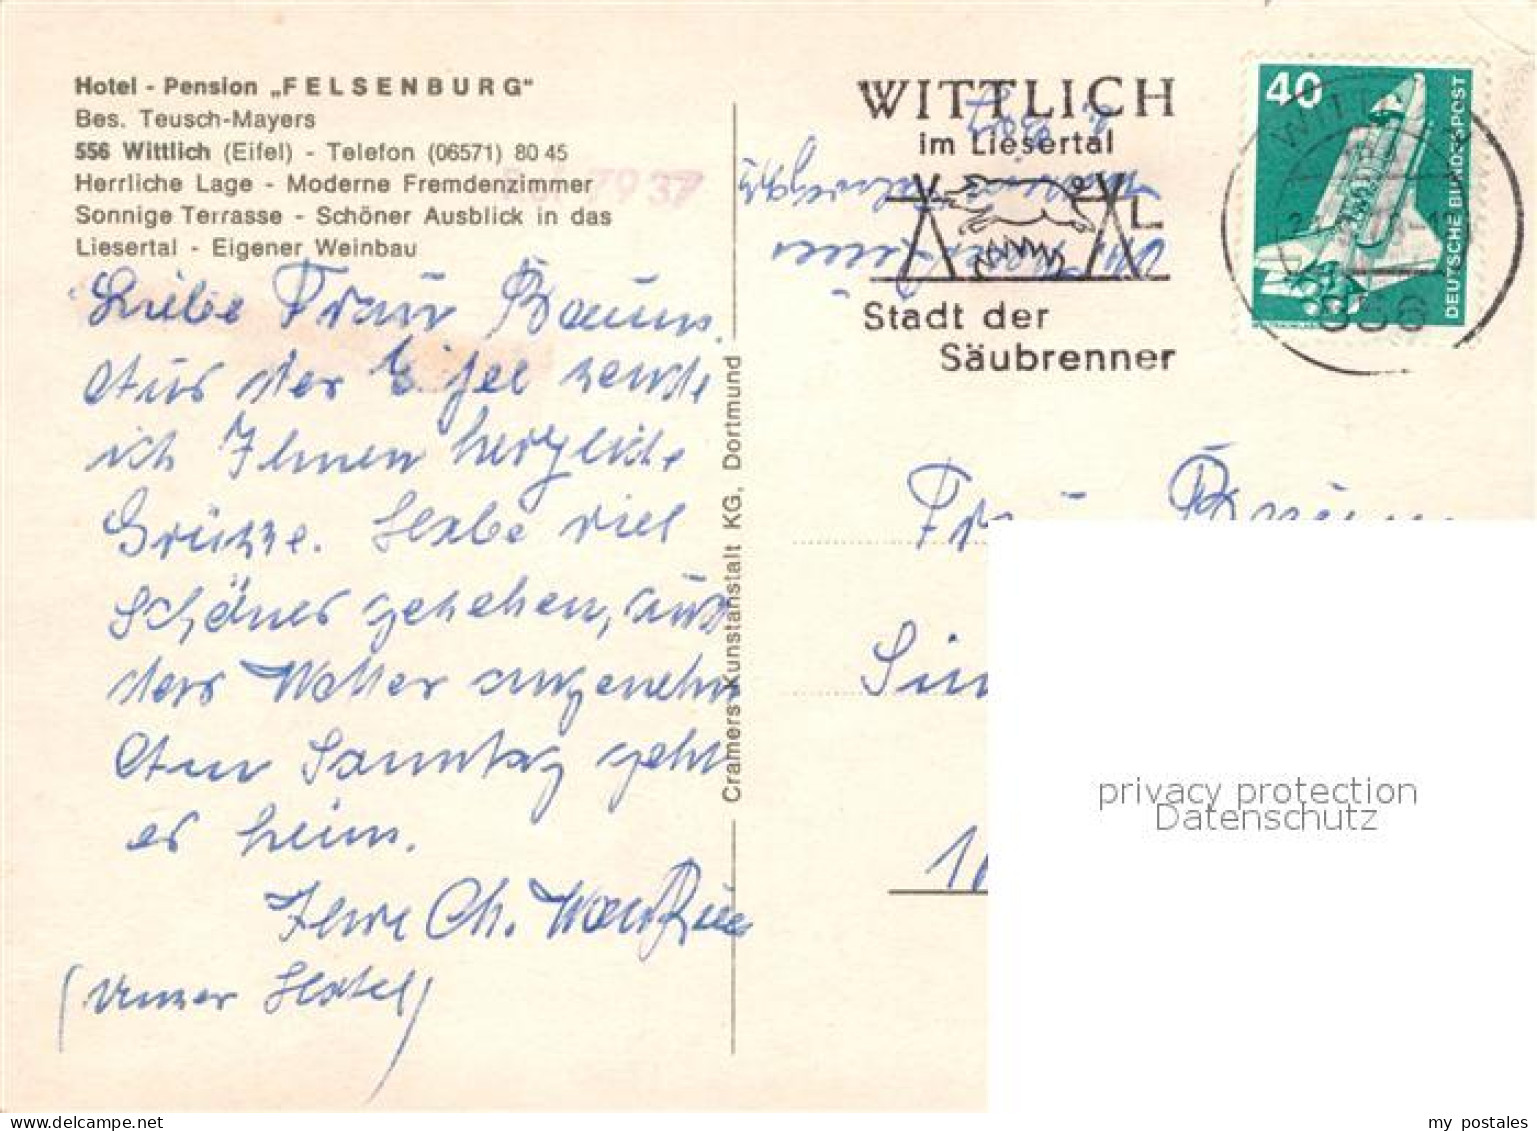 Hotel - Pension „FELSENBURG"
Bes. Teusch-Mayers
556 Wittlich (Eifel) - Telefon (06571) 80 45
Herrliche Lage - Moderne Fremdenzimmer
Sonnige Terrasse - Schöner Ausblick in das
Liesertal - Eigener Weinbau
Liebe Frau Baum,
Aus der Eifel sende
ich Ihnen herzliche
Grüsse. Habe viel
schönes gesehen, auch
das Wetter angenehm
Am Sonntag geht
es heim.
Ihre Ch.
(Unser Hotel)
Cramers Kunstanstalt KG, Dortmund
WITTLICH
im Liesertal
Stadt der
Säubrenner
40
DEUTSCHE BUNDESPOST
WITTLICH
556
Frau Baum
privacy protection
Datenschutz
my postales